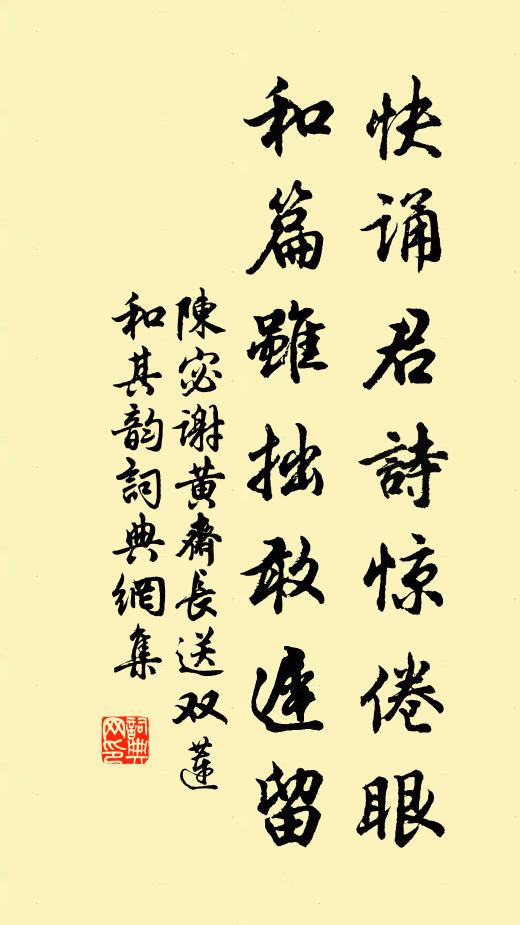 快诵君詩惊倦眼
和篇雖拙敢遲留
陳宓谢黄齋長送双蓮
和其韵詞典網集
詞典网印